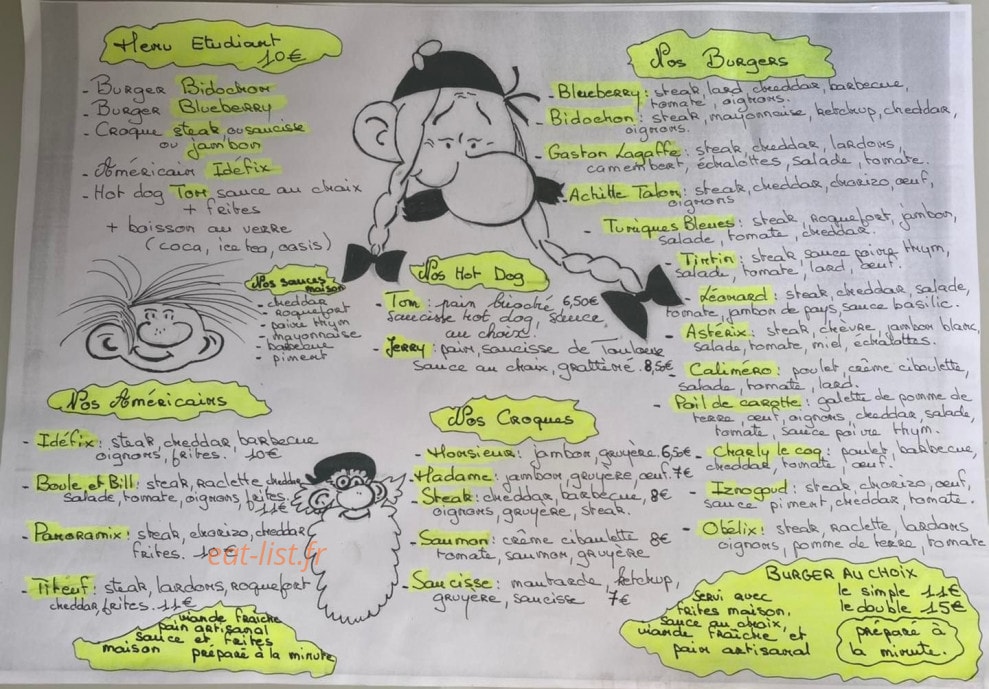 Menu Etudiant
10€
- Burger Bidochon
- Burger Blueberry
- Croque steak, ou saucisse
ou jambon
- Américain Idéfix
- Hot dog Tom sauce au choix
+ frites
+ boisson au verre
(coca, ice tea, oasis)
Nos sauces
maison
- cheddar
- roquefort
- poivre thym
- mayonnaise
- barbecue
- piment
Nos Américains
- Idéfix : steak, cheddar barbecue
oignons, frites. 10€
- Boule et Bill : steak, raclette cheddar
salade, tomate, oignons frites.
11€
- Panoramix : steak, chorizo, cheddar
frites.
- Titeuf : steak, lardons, roquefort
cheddar, frites. 11€
viande fraîche
pain artisanal
sauce et frites
maison préparé à la minute
Nos Hot Dog
- Tom : pain brioché 6,50€
saucisse hot dog, sauce
au choix
- Jerry : pain, saucisse de Toulouse
sauce au choix, grattière. 8,5€
Nos Croques
- Monsieur : jambon, gruyère. 6,5€
- Madame : jambon, gruyère, œuf. 7€
- Steak : cheddar, barbecue, 8€
oignons, gruyere, steak.
- Saumon : crème ciboulette 8€
tomate, saumon, gruyère
- Saucisse : moutarde, ketchup,
gruyere, saucisse 7€
Nos Burgers
- Blueberry : steak, lard, cheddar, barbecue,
tomate, oignons.
- Bidochon : steak, mayonnaise, ketchup, cheddar,
oignons.
- Gaston Lagaffe : steak, cheddar, lardons,
camembert, échalottes, salade, tomate.
- Achille Talon : steak, cheddar, chorizo, œuf,
oignons
- Tuniques Bleues : steak, roquefort, jambon,
salade, tomate, cheddar.
- Tintin : steak sauce poivre thym,
salade, tomate, lard, œuf.
- Léonard : steak, cheddar, salade,
tomate, jambon de pays, sauce basilic.
- Astérix : steak, chevre, jambon blanc,
salade, tomate, miel, échalottes.
- Caliméro : poulet, crème ciboulette,
salade, tomate, lard.
- Poil de carotte : galette de pomme de
terre, œuf, oignons, cheddar, salade,
tomate, sauce poivre thym.
- Charly le coq : poulet, barbecue,
cheddar, tomate, œuf.
- Iznogoud : steak, chorizo, œuf,
sauce piment, cheddar, tomate.
- Obélix : steak, raclette, lardons
oignons, pomme de terre, tomate
BURGER AU CHOIX
le simple 11€
le double 15€
servi avec
frites maison,
sauce au choix,
viande fraîche et
pain artisanal
préparé à
la minute.
eat-list.fr